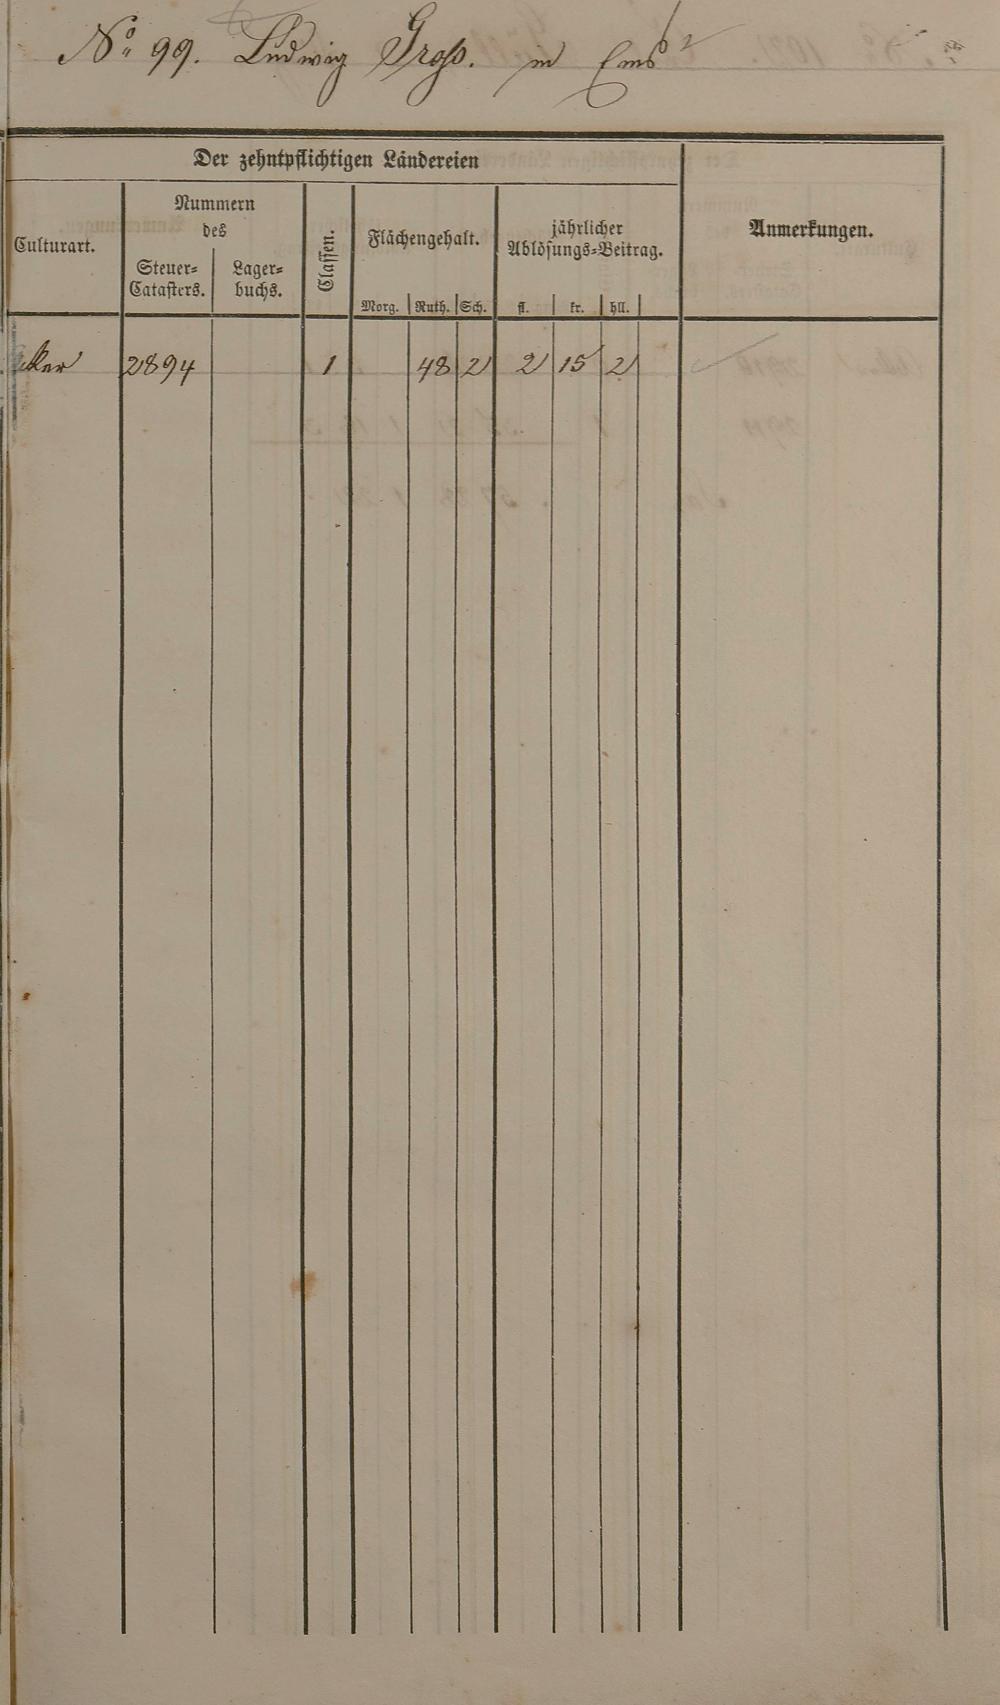 No 99. Ludwig Groß. in Ems
Der zehntpflichtigen Ländereien
Culturart.
Nummern
des
Steuer-
Catasters.
Lager-
buchs.
Classen.
Flächengehalt.
Morg. Ruth. Sch.
jährlicher
Ablösungs-Beitrag.
fl. kr. hll.
Anmerkungen.
Acker 2894 1 48 2 2 15 2